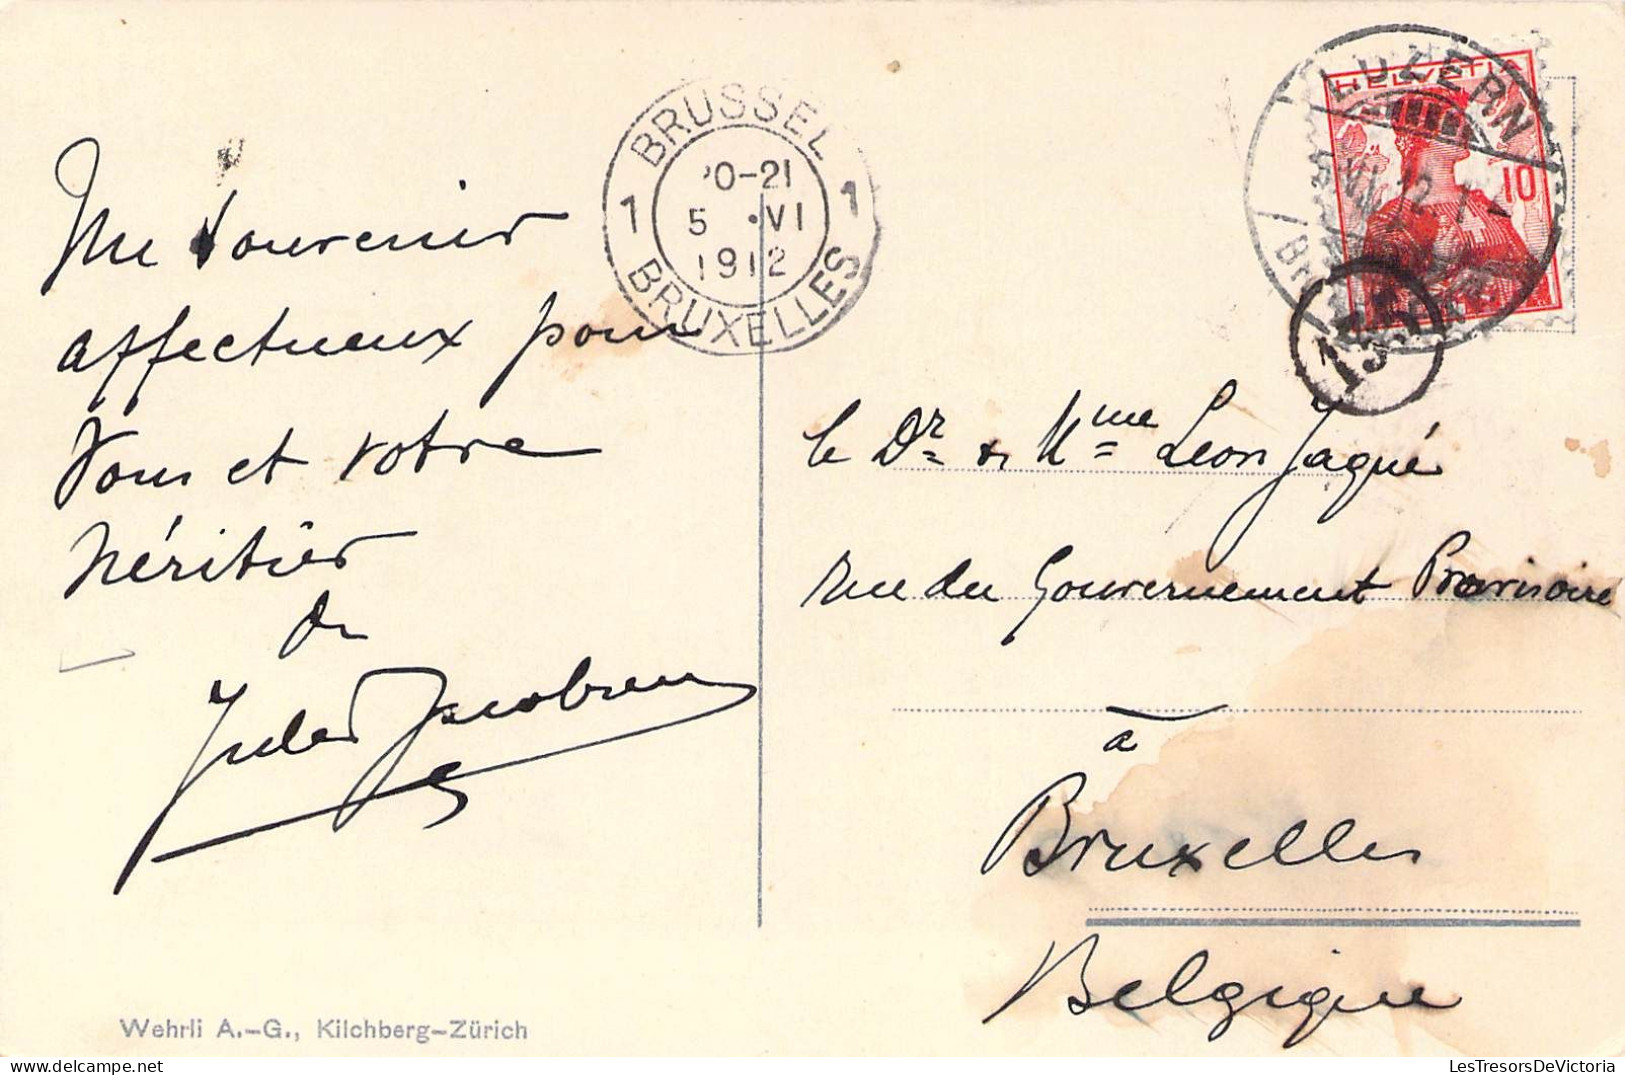 Un souvenir
affectueux pour
Vous et votre
héritier
de
Jules Jacobsen
Wehrli A.-G., Kilchberg-Zürich
BRUSSEL
1 20-21 1
5 ·VI
1912
BRUXELLES
LUZERN
HELVETIA
10
15
le Dr & Mme Leon Jaqué
rue du Gouvernement Provisoire
à
Bruxelles
Belgique
LesTresorsDeVictoria.com